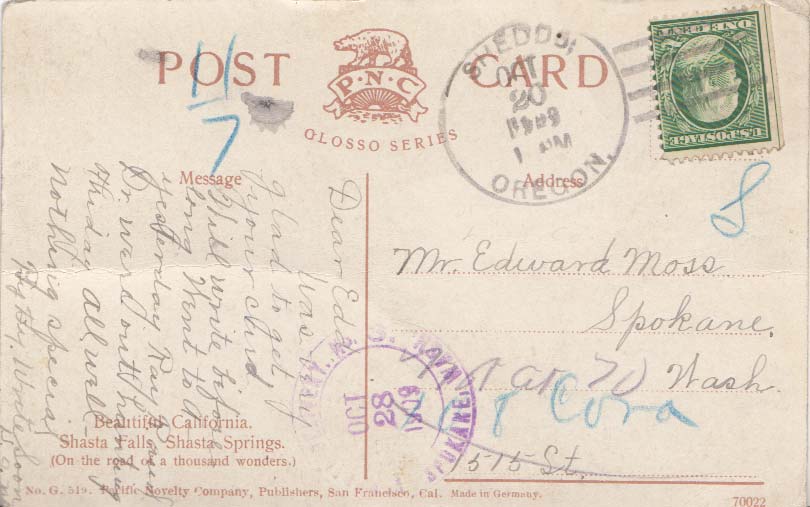 POST CARD
P·N·C
GLOSSO SERIES
SHEDD
OCT
20
1909
1 PM
OREGON.
ONE CENT
U.S. POSTAGE
11
7
8
Message
Address
Dear Ed
Was
glad to get
your card
Will write before
long Went to
yesterday Ray and
Dr. Ward out hunting
thiday all well
nothing special
By By. Write Soon
Mr. Edward Moss
Spokane,
Wash.
Cora
1515 St.
OCT
28
1909
SPOKANE
Beautiful California.
Shasta Falls, Shasta Springs.
(On the road of a thousand wonders.)
No. G. 519. Pacific Novelty Company, Publishers, San Francisco, Cal. Made in Germany.
70022